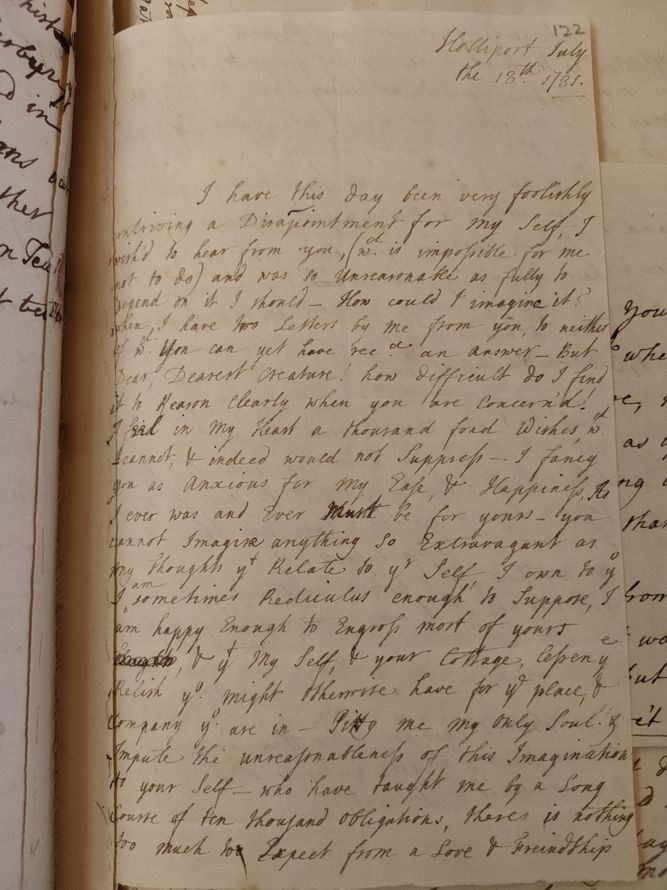 122
Holliport July
the 18th 1731.
I have this day been very foolishly
contriving a Disapointment for my Self, I
wish'd to hear from you, (wch is impossible for me
not to do) and was so unreasonable as fully to
Depend on it I should – How could I imagine it?
when, I have two Letters by me from you, to neither
of wch you can yet have recd an answer – But
Dear, Dearest Creature! how difficult do I find
it to Reason Clearly when you are Concern'd.
I feel in my Heart a thousand fond Wishes, wch
I cannot, & indeed would not Suppress – I fancy
you as Anxious for my Ease, & Happiness, As
I ever was and Ever Must be for yours – you
cannot Imagine anything So Extravagant as
my thoughts yt Relate to yr Self, I own to yu
I am sometimes Rediculus enough to Suppose, I
am happy Enough to Engross most of yours
, & yt My Self, & your Cottage, lessen ye
Relish yu might otherwise have for ye place, &
Company yu are in – Pitty me my only Soul! &
Impute the unreasonableness of this Imagination
to your Self – who have taught me by a Long
Course of ten thousand obligations, theres is nothing
too much to Expect from a Love & Freindship